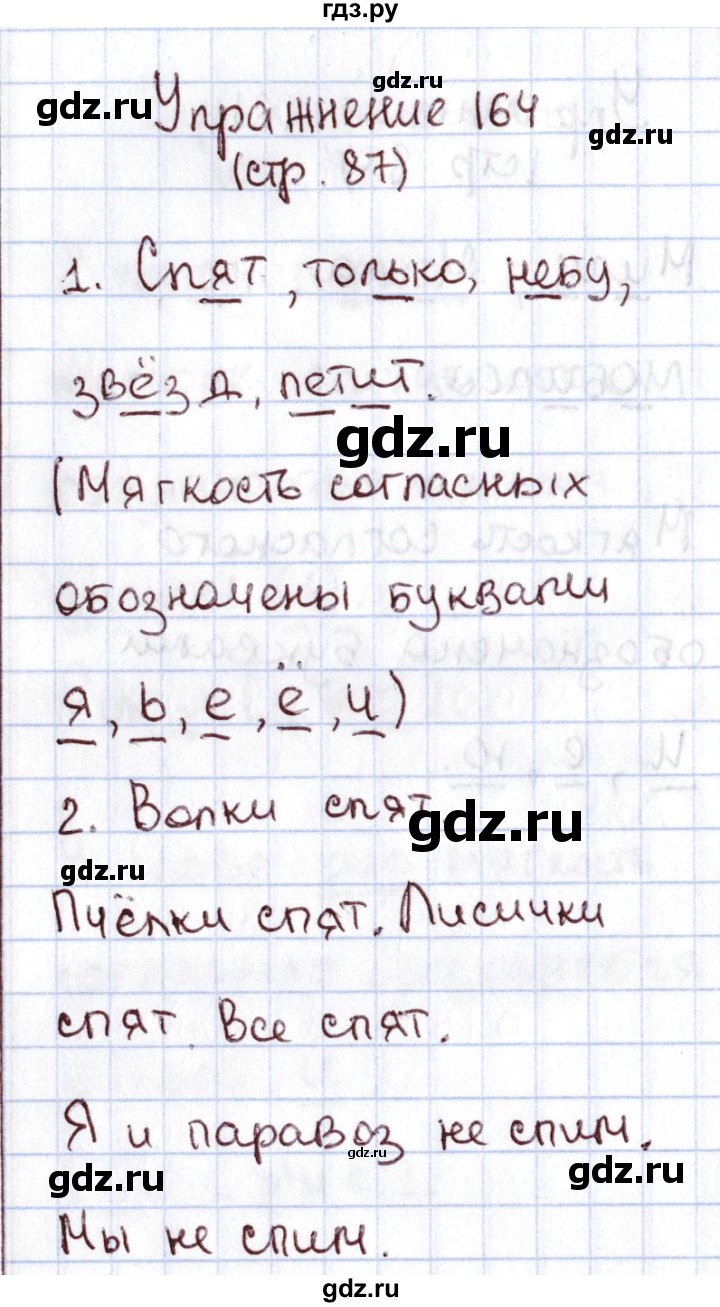 гдз.ру
gdz.ru
gdz.ru
gdz.ru
Упражнение 164
(стр. 87)
1. Спят, только, небу,
звёзд, летит.
gdz.ru
(Мягкость согласных
обозначены буквами
я, ь, е, ё, и)
2. Волки спят
gdz.ru
gdz.ru
Пчёлки спят. Лисички
спят Все спят.
Я и паравоз не спим.
gdz.ru
gdz.ru
gdz.ru
Мы не спим.
gdz.ru